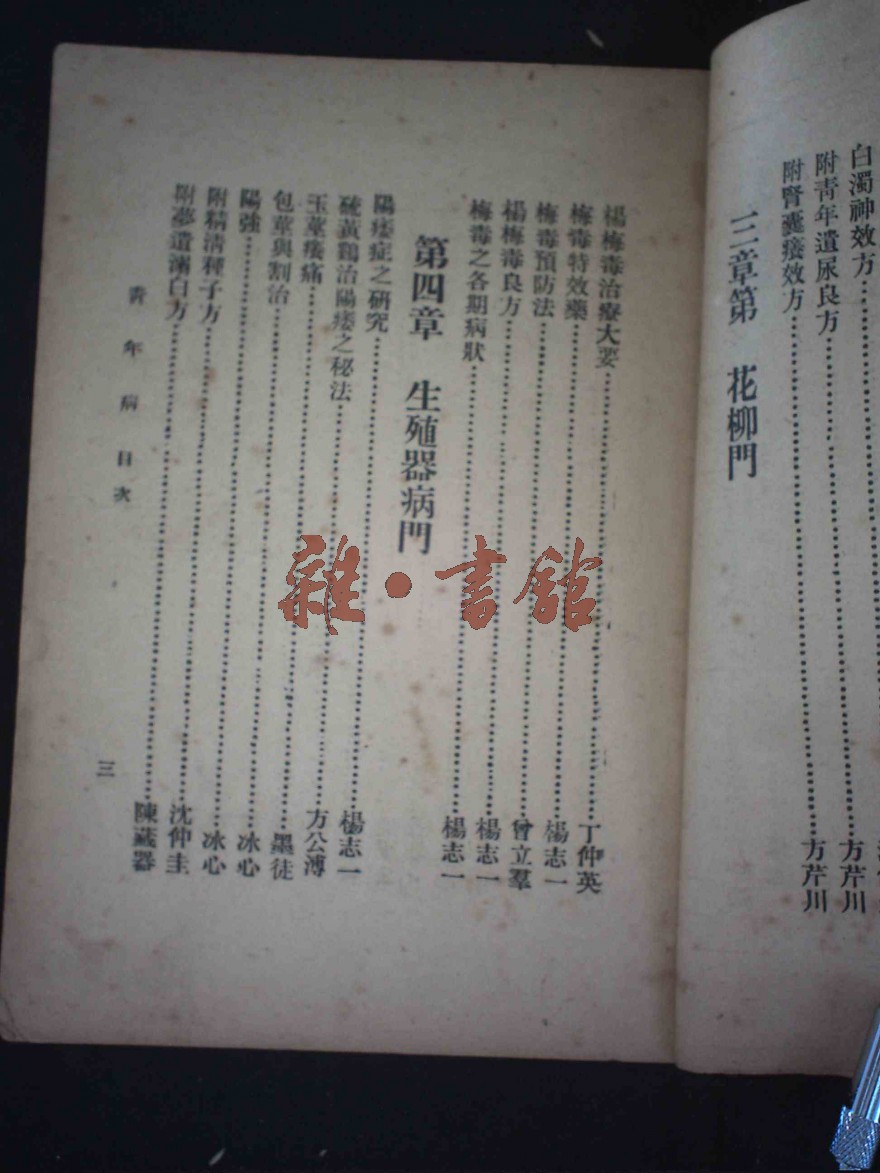 白濁神效方……………
附青年遺尿良方……………方芹川
附腎囊癢效方……………方芹川
三章第　花柳門
楊梅毒治療大要……………丁仲英
梅毒特效藥……………楊志一
梅毒預防法……………曾立羣
楊梅毒良方……………楊志一
梅毒之各期病狀……………楊志一
第四章　生殖器病門
陽痿症之研究……………楊志一
硫黃鷄治陽痿之秘法……………方公溥
玉莖痿痛……………墨徒
包莖與割治……………冰心
陽強……………冰心
附精清種子方……………沈仲圭
附夢遺滿白方……………陳藏器
青年病目次
三
雜·書館